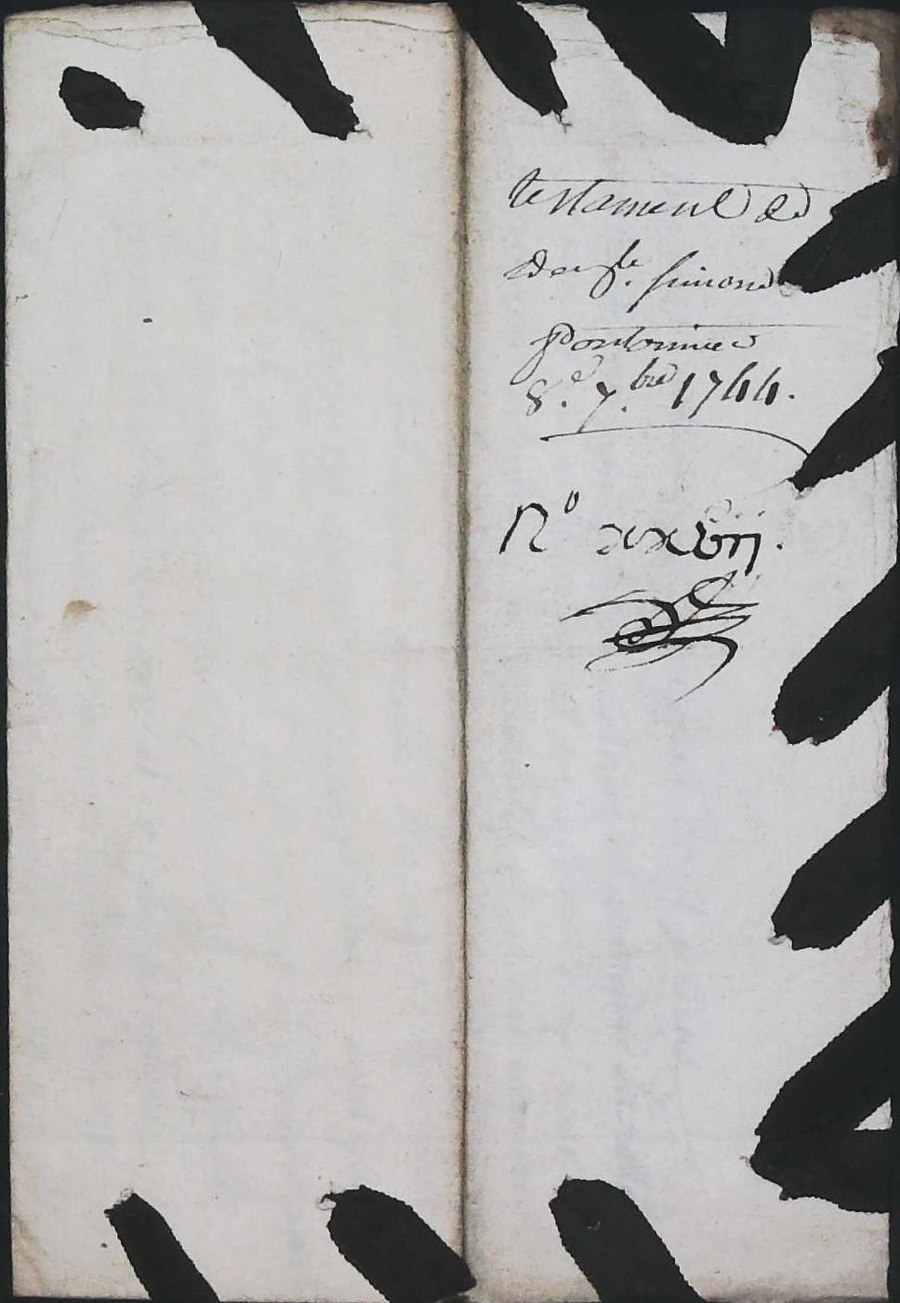 testament de
Dem.lle Simone
Pontonnier
8.e 7.bre 1744.
No xxvij.